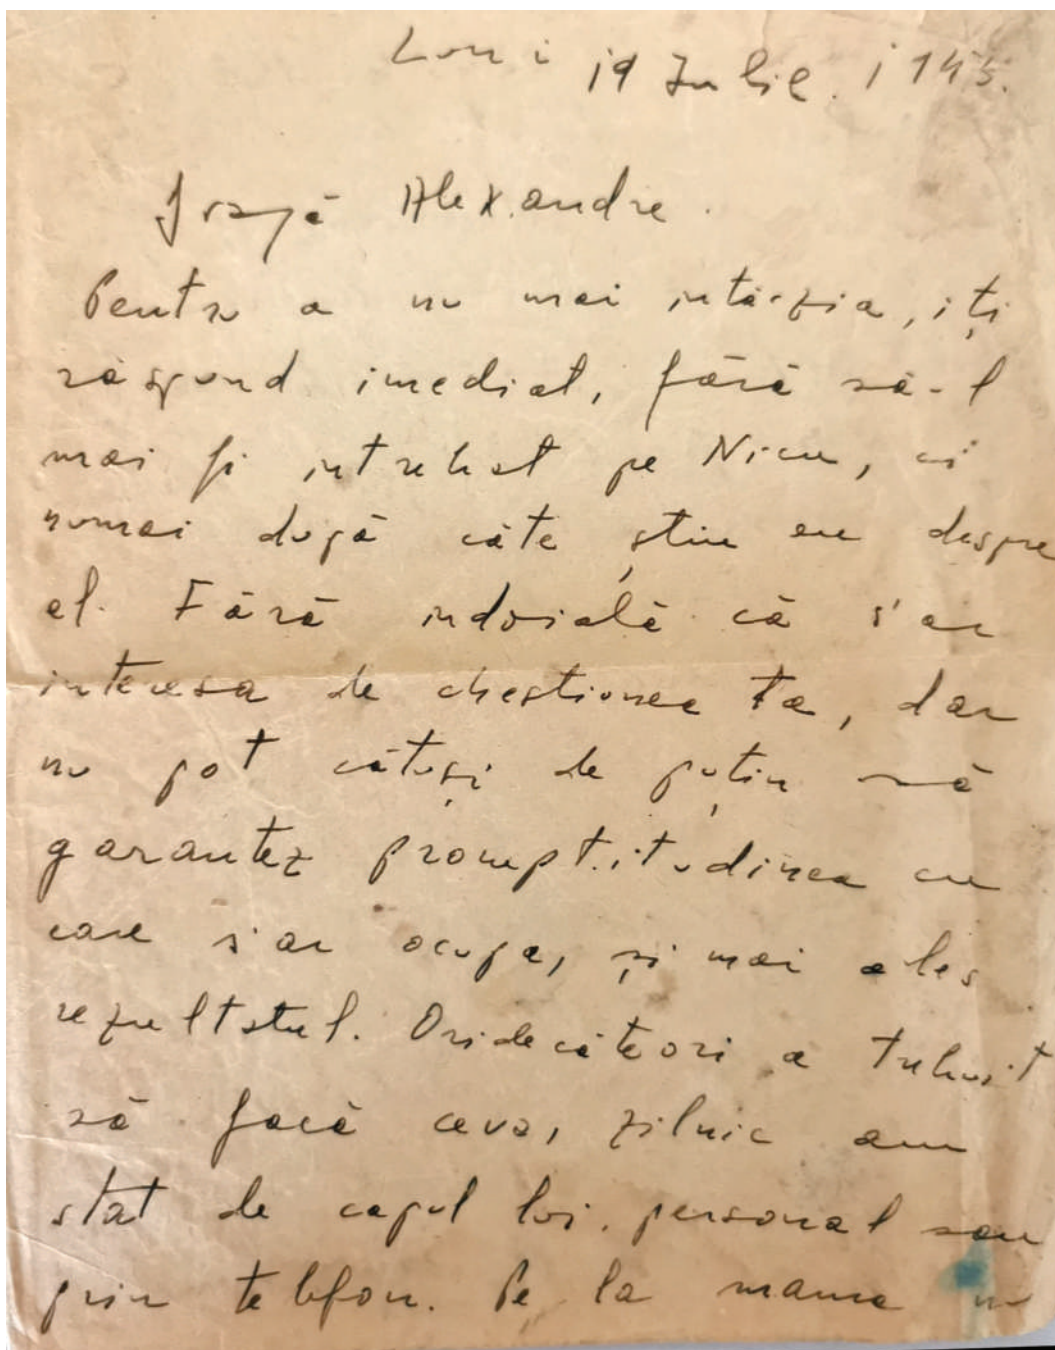 Luni 19 Iulie. 1943.
Dragă Alexandre.
Pentru a nu mai intârzia, iți
răspund imediat, fără să-l
mai fi intrebat pe Nicu, ci
numai după câte știu eu despre
el. Fără indoială că s'ar
interesa de chestiunea ta, dar
nu pot câtuși de puțin să
garantez promptitudinea cu
care s'ar ocupa, și mai ales
rezultatul. Oridecâteori a trebuit
să facă ceva, zilnic am
stat de capul lui. personal sau
prin telefon. Pe la mama nu